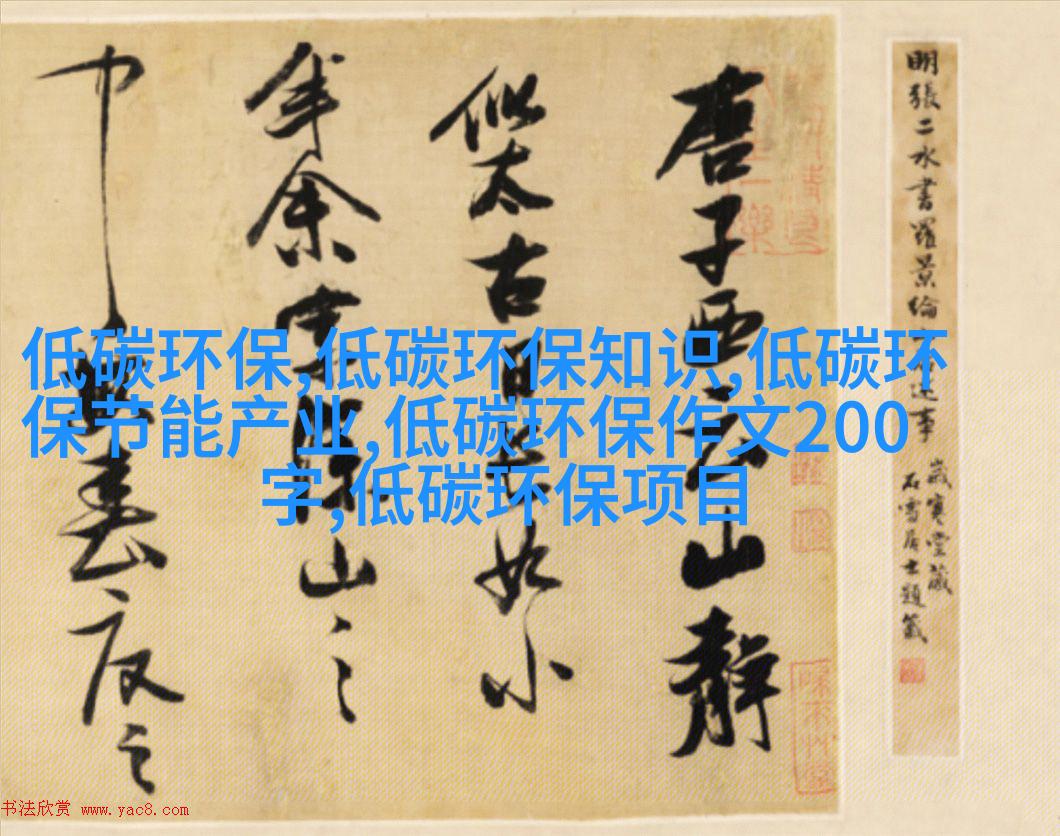 低碳环保,低碳环保知识,低碳环
保节能产业,低碳环保作文200
字,低碳环保项目
明張二水書羅景綸居述事
歲寒堂藏
石雪居士題籤
唐子西云山靜
似太古日長如小
年余家深山之
中每春夏之
书法欣赏 www.yac8.com